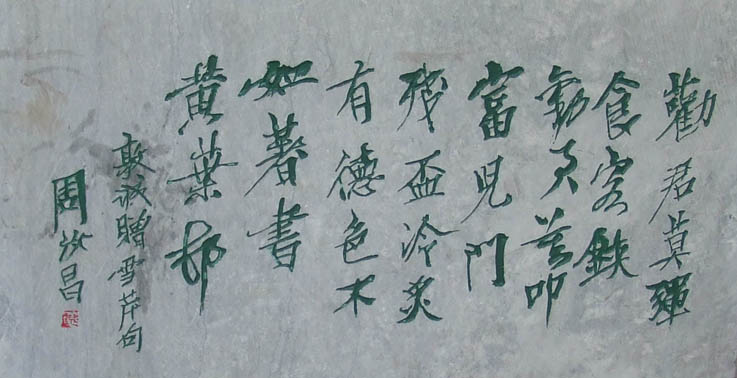 勸君莫彈
食客鋏
勸君莫叩
富兒門
殘盃冷炙
有德色不
如著書
黄葉邨
敦诚贈雪芹句
周汝昌